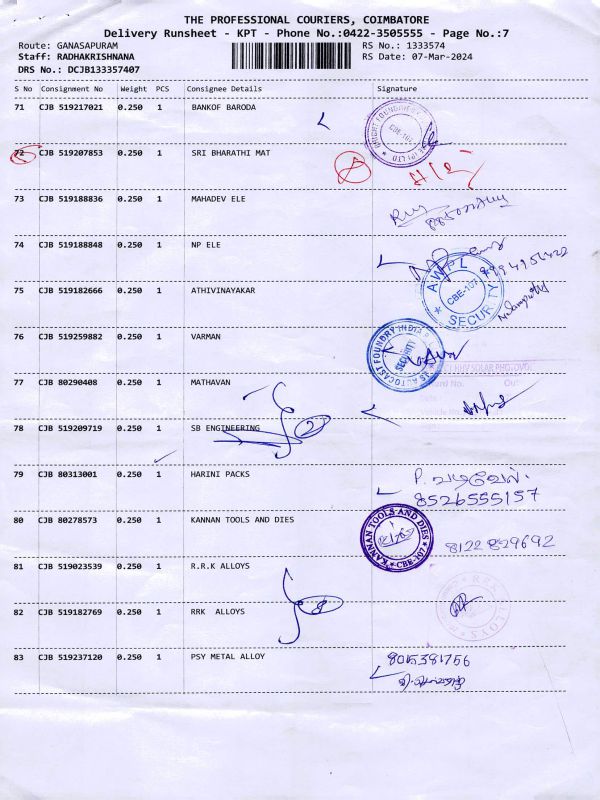 THE PROFESSIONAL COURIERS, COIMBATORE
Delivery Runsheet - KPT - Phone No.:0422-3505555 - Page No.:7
Route: GANASAPURAM RS No.: 1333574
Staff: RADHAKRISHNANA RS Date: 07-Mar-2024
DRS No.: DCJB133357407
S No Consignment No Weight PCS Consignee Details Signature
71 CJB 519217021 0.250 1 BANKOF BARODA
72 CJB 519207853 0.250 1 SRI BHARATHI MAT
73 CJB 519188836 0.250 1 MAHADEV ELE
74 CJB 519188848 0.250 1 NP ELE
75 CJB 519182666 0.250 1 ATHIVINAYAKAR
AWPL
CBE-107
SECURITY
76 CJB 519259882 0.250 1 VARMAN
AUTOCAST FOUNDRY INDIA
SECURITY
77 CJB 80290408 0.250 1 MATHAVAN
2
78 CJB 519209719 0.250 1 SB ENGINEERING
79 CJB 80313001 0.250 1 HARINI PACKS
P. வடிவேல்
8526555157
80 CJB 80278573 0.250 1 KANNAN TOOLS AND DIES
KANNAN TOOLS AND DIES
CBE-107
8122829692
81 CJB 519023539 0.250 1 R.R.K ALLOYS
8
82 CJB 519182769 0.250 1 RRK ALLOYS
83 CJB 519237120 0.250 1 PSY METAL ALLOY
8015381756